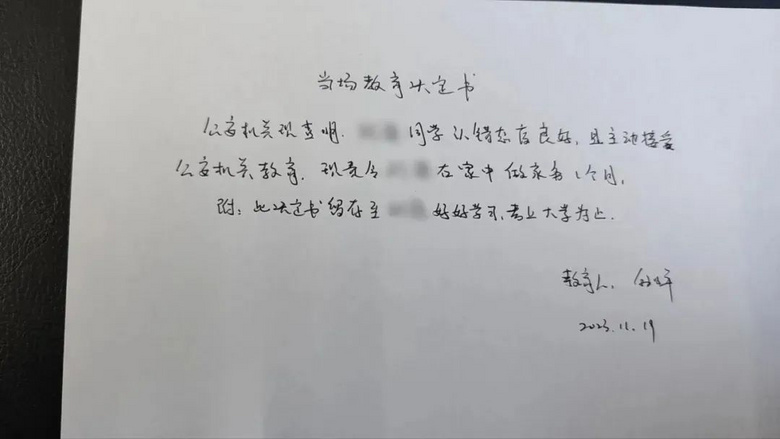 当场教育决定书
公安机关现查明，同学认错态度良好，且主动接受
公安机关教育，现责令在家中做家务1个月。
附：此决定书留存至好好学习，考上大学为止．
教育人：
2023.11.19